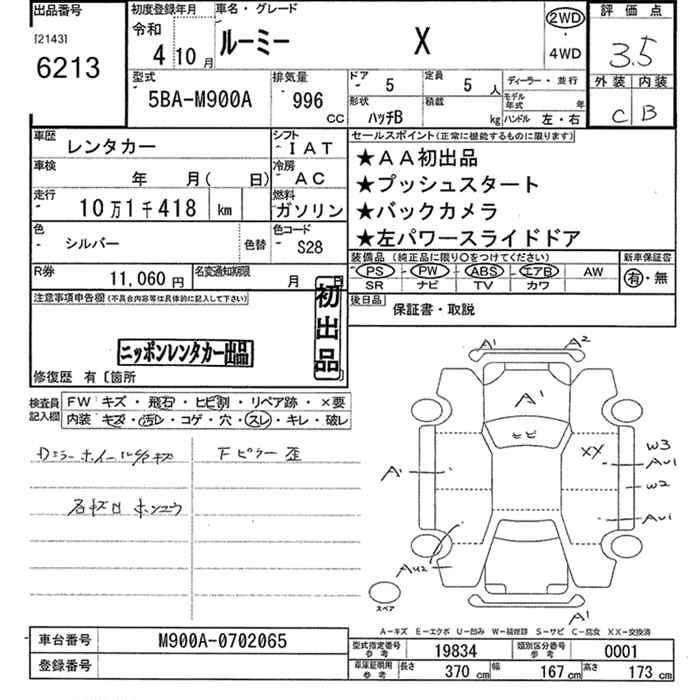 出品番号
[2143]
6213
初度登録年月
令和
4 10月
車名・グレード
ルーミー X
2WD
・
4WD
評価点
3.5
外装 内装
C B
型式
5BA-M900A
排気量
996
CC
ドア
5
定員
5 人
形状
ハッチB
積載
kg
ディーラー・並行
モデル年式 年
ハンドル 左・右
車歴
レンタカー
シフト
IAT
車検
年 月( 日)
冷房
AC
走行
10万1千418 km
燃料
ガソリン
色
シルバー
色替
色コード
S28
R券
11,060円
名変通知期限
月 日
セールスポイント(正常に機能するものに限ります)
★AA初出品
★プッシュスタート
★バックカメラ
★左パワースライドドア
装備品(純正品に限り○をつけてください)
PS PW ABS エアB AW
SR ナビ TV カワ
新車保証書
有・無
後日品
保証書・取説
注意事項申告欄(不具合内容等は具体的に記入して下さい)
初出品
ニッポンレンタカー出品
修復歴 有〔箇所
検査員記入欄
FW キズ・飛石・ヒビ割・リペア跡・×要
内装 キズ・汚レ・コゲ・穴・スレ・キレ・破レ
Fピラー歪
A1 A2
A1
ヒビ
XX
W3
AU1
W2
A1
AU1
AU2
A1
スペア
A-キズ E-エクボ U-凹み W-補修跡 S-サビ C-腐食 XX-交換済
車台番号
M900A-0702065
登録番号
型式指定番号参考
19834
類別区分番号参考
0001
車庫証明用参考
長さ 370 cm 幅 167 cm 高さ 173 cm